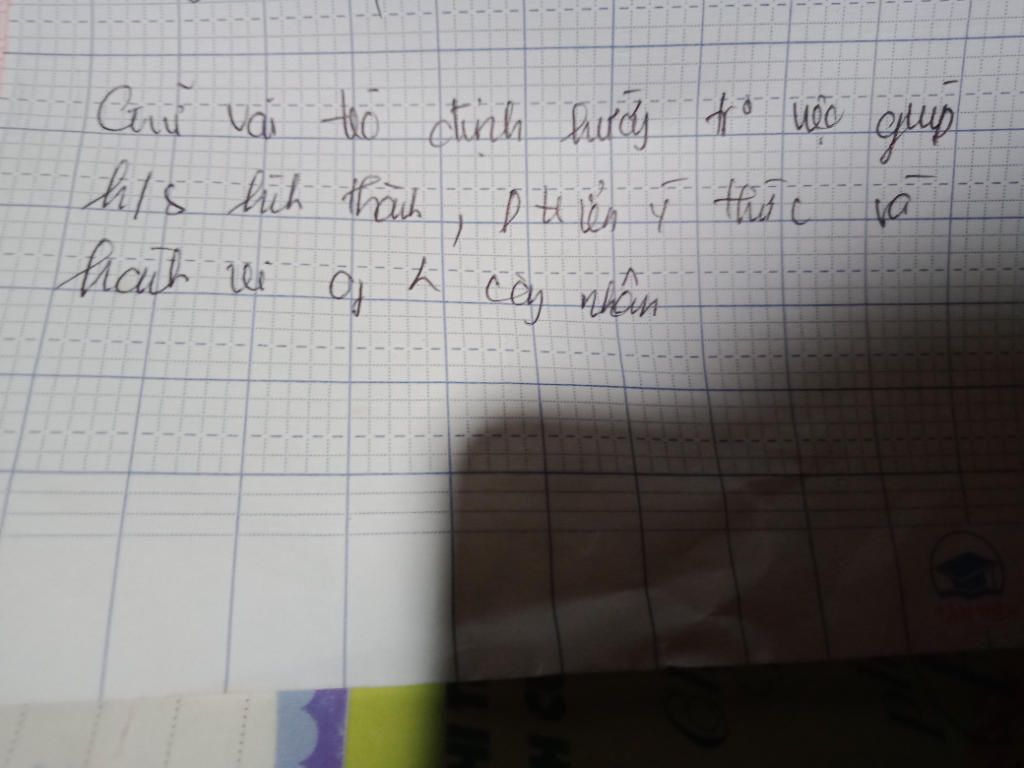 Giữ vai trò định hướg tro việc giúp
h/s hìh thàh, ptriển ý thức và
hàh vi cg nhân